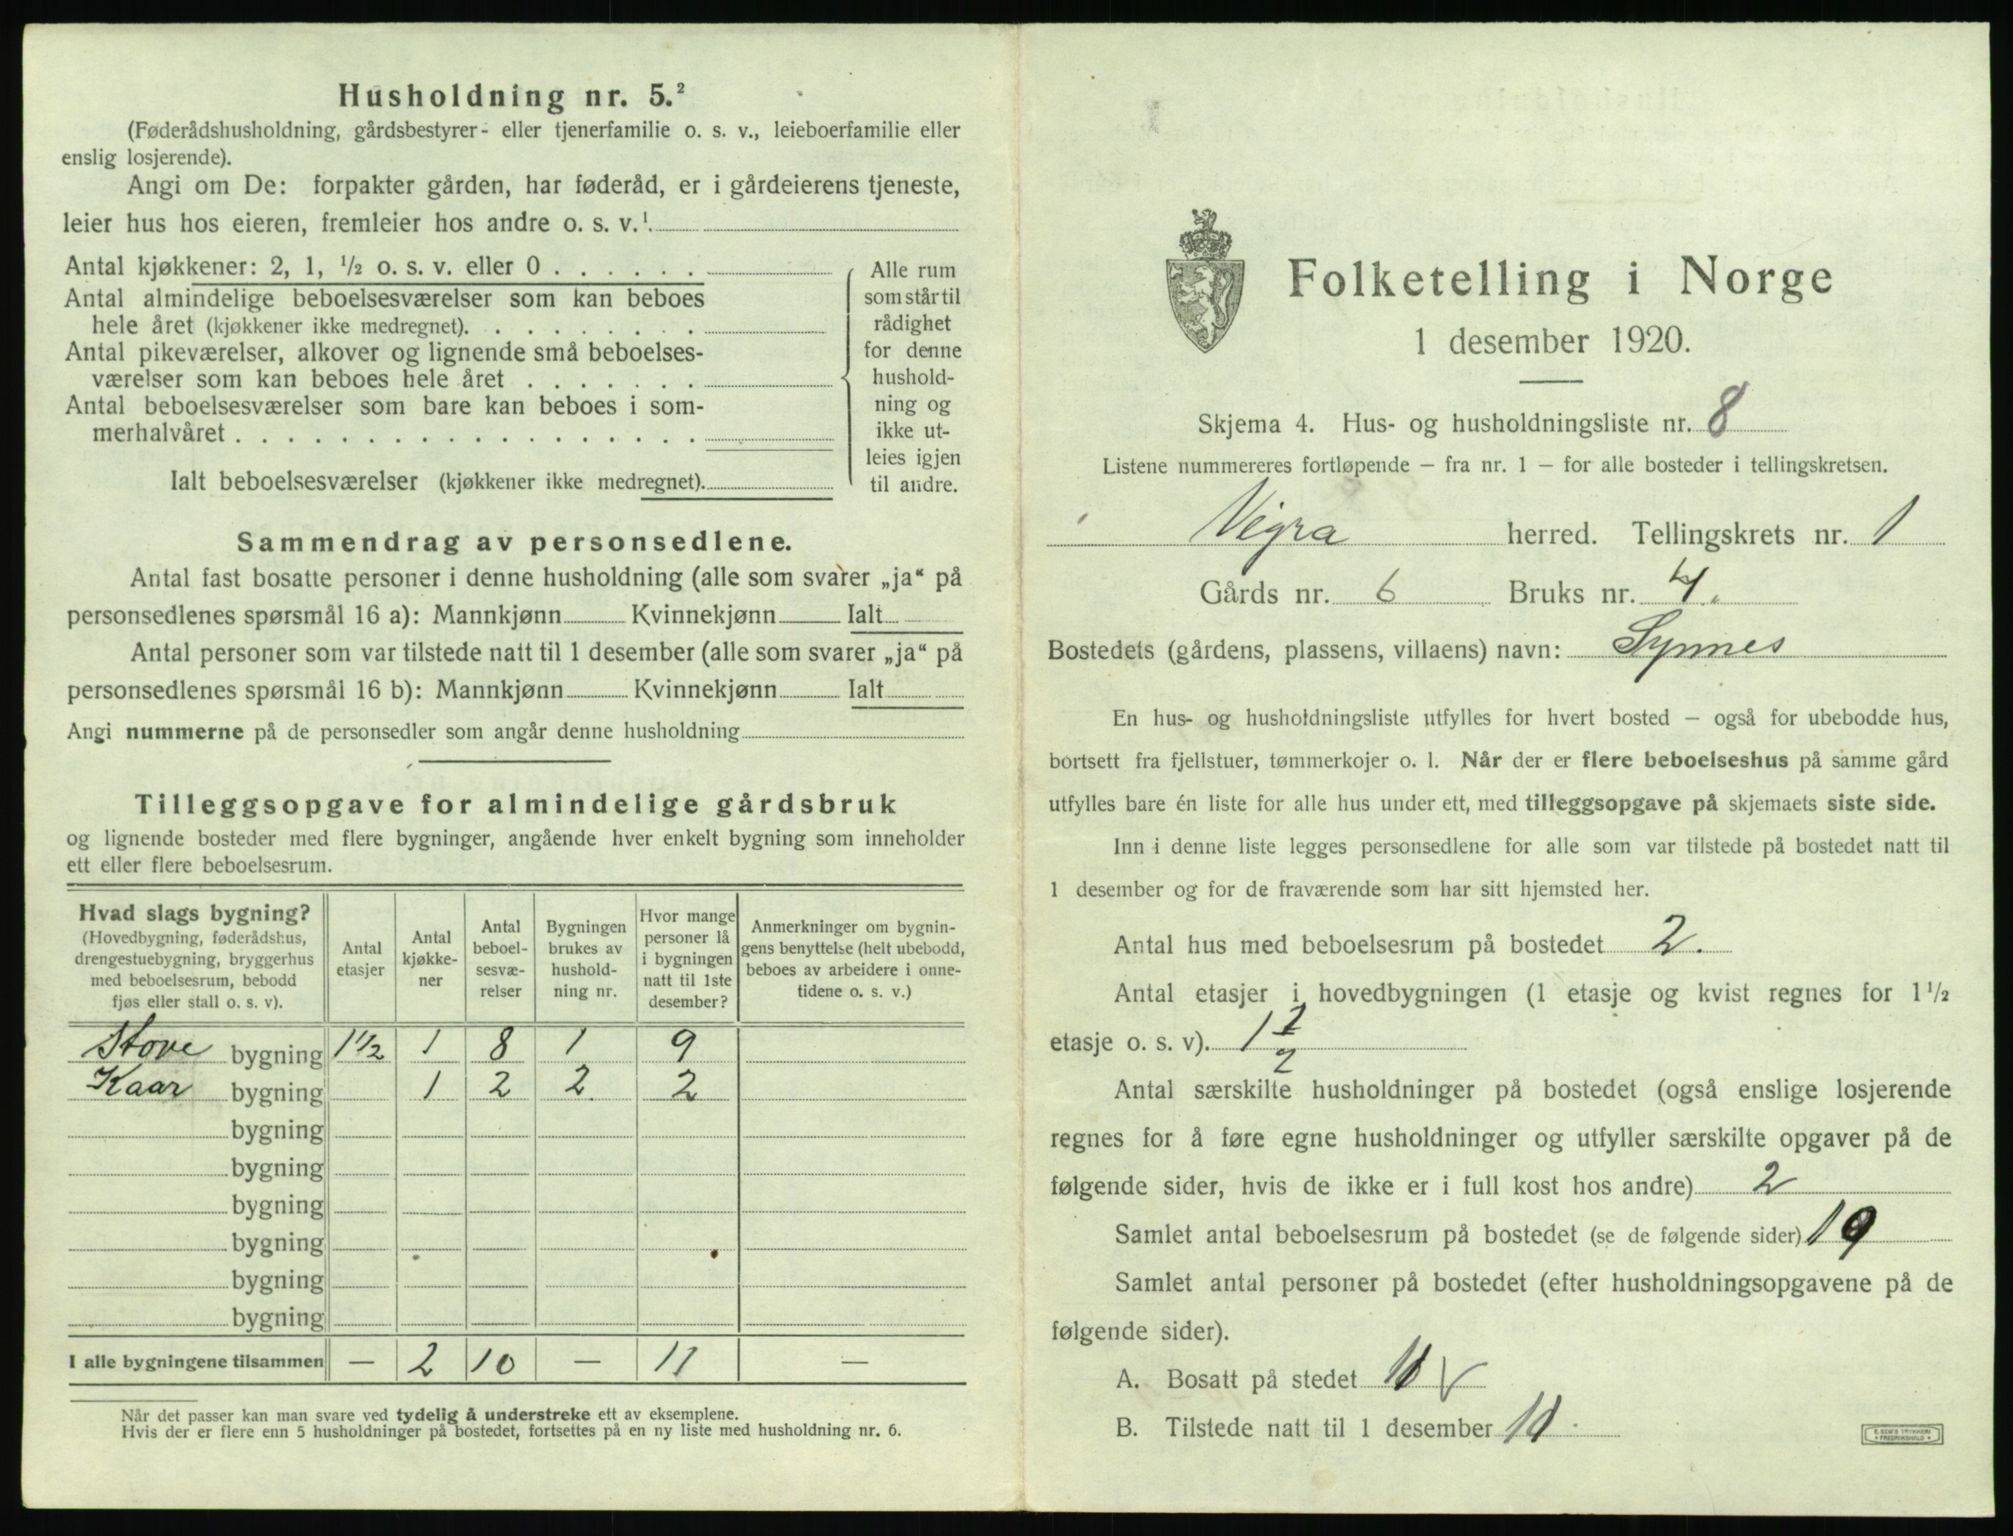 Husholdning nr. 5.²
(Føderådshusholdning, gårdsbestyrer- eller tjenerfamilie o. s. v., leieboerfamilie eller
enslig losjerende).
Angi om De: forpakter gården, har føderåd, er i gårdeierens tjeneste,
leier hus hos eieren, fremleier hos andre o. s. v.¹.
Antal kjøkkener: 2, 1, ½ o. s. v. eller 0 . . . . . .
Antal almindelige beboelsesværelser som kan beboes
hele året (kjøkkener ikke medregnet). . . . . . . . .
Antal pikeværelser, alkover og lignende små beboelses-
værelser som kan beboes hele året . . . . . . .
Antal beboelsesværelser som bare kan beboes i som-
merhalvåret . . . . . . . . . . . . . . . . . .
Ialt beboelsesværelser (kjøkkener ikke medregnet).
Alle rum
som står til
rådighet
for denne
hushold-
ning og
ikke ut-
leies igjen
til andre.
Sammendrag av personsedlene.
Antal fast bosatte personer i denne husholdning (alle som svarer „ja“ på
personsedlenes spørsmål 16 a): Mannkjønn Kvinnekjønn Ialt
Antal personer som var tilstede natt til 1 desember (alle som svarer „ja“ på
personsedlenes spørsmål 16 b): Mannkjønn Kvinnekjønn Ialt
Angi nummerne på de personsedler som angår denne husholdning
Tilleggsopgave for almindelige gårdsbruk
og lignende bosteder med flere bygninger, angående hver enkelt bygning som inneholder
ett eller flere beboelsesrum.
Hvad slags bygning?
(Hovedbygning, føderådshus,
drengestuebygning, bryggerhus
med beboelsesrum, bebodd
fjøs eller stall o. s. v).
Antal
etasjer
Antal
kjøkke-
ner
Antal
beboel-
sesvæ-
relser
Bygningen
brukes av
hushold-
ning nr.
Hvor mange
personer lå
i bygningen
natt til 1ste
desember?
Anmerkninger om bygnin-
gens benyttelse (helt ubebodd,
beboes av arbeidere i onne-
tidene o. s. v.)
Stove bygning 1½ 1 8 1 9
Kaar bygning 1 2 2 2
bygning
bygning
bygning
bygning
bygning
bygning
I alle bygningene tilsammen — 2 10 — 11 —
Når det passer kan man svare ved tydelig å understreke ett av eksemplene.
Hvis der er flere enn 5 husholdninger på bostedet, fortsettes på en ny liste med husholdning nr. 6.
Folketelling i Norge
1 desember 1920.
Skjema 4. Hus- og husholdningsliste nr. 8
Listene nummereres fortløpende – fra nr. 1 – for alle bosteder i tellingskretsen.
Vigra herred. Tellingskrets nr. 1
Gårds nr. 6 Bruks nr. 4.
Bostedets (gårdens, plassens, villaens) navn: Synnes
En hus- og husholdningsliste utfylles for hvert bosted – også for ubebodde hus,
bortsett fra fjellstuer, tømmerkojer o. l. Når der er flere beboelseshus på samme gård
utfylles bare én liste for alle hus under ett, med tilleggsopgave på skjemaets siste side.
Inn i denne liste legges personsedlene for alle som var tilstede på bostedet natt til
1 desember og for de fraværende som har sitt hjemsted her.
Antal hus med beboelsesrum på bostedet 2.
Antal etasjer i hovedbygningen (1 etasje og kvist regnes for 1½
etasje o. s. v). 1½
Antal særskilte husholdninger på bostedet (også enslige losjerende
regnes for å føre egne husholdninger og utfyller særskilte opgaver på de
følgende sider, hvis de ikke er i full kost hos andre) 2
Samlet antal beboelsesrum på bostedet (se de følgende sider) 10
Samlet antal personer på bostedet (efter husholdningsopgavene på de
følgende sider).
A. Bosatt på stedet 11 √
B. Tilstede natt til 1 desember 11
E. SEM'S TRYKKERI
FREDRIKSHALD